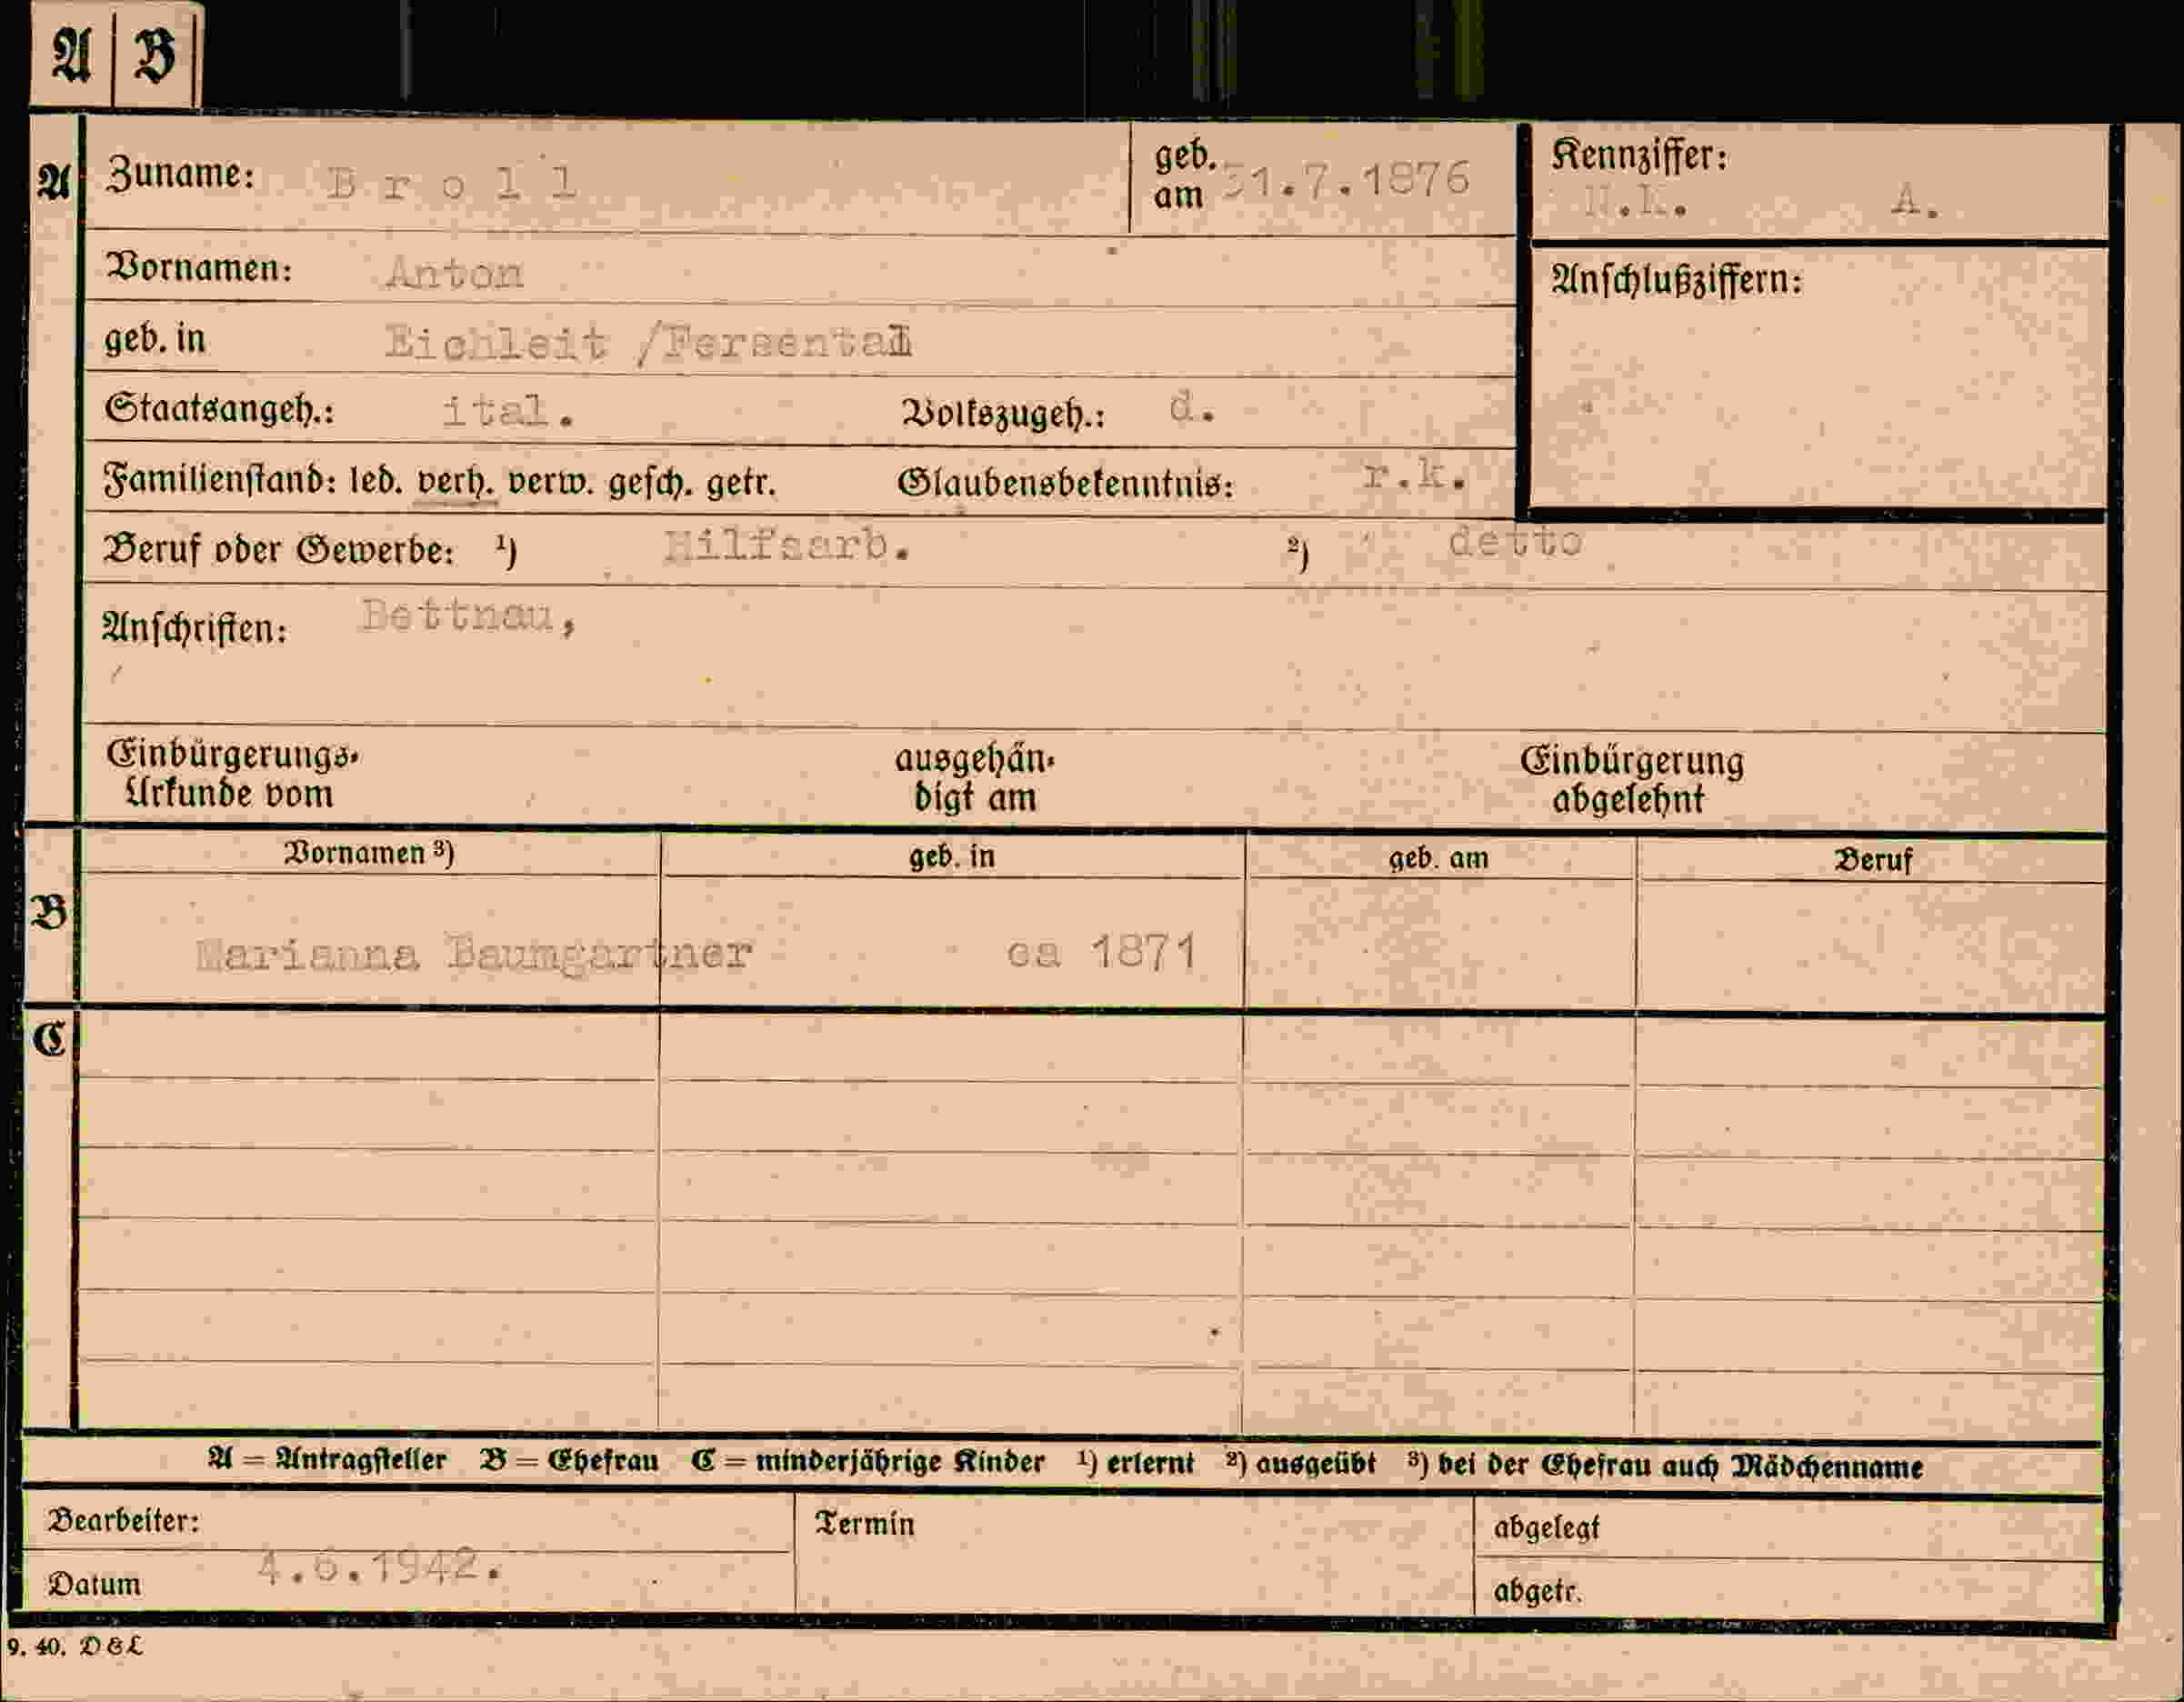 A B
A Zuname: Broll geb. am 31.7.1876 Kennziffer:
A.
Vornamen: Anton Anschlußziffern:
geb. in Eichleit /Fersental
Staatsangeh.: ital. Volkszugeh.: d.
Familienstand: led. verh. verw. gesch. getr. Glaubensbekenntnis: r.k.
Beruf oder Gewerbe: ¹) Hilfsarb. ²) detto
Anschriften: Bettnau,
Einbürgerungs- ausgehän- Einbürgerung
Urkunde vom digt am abgelehnt
Vornamen ³) geb. in geb. am Beruf
B
Marianna Baumgartner ca 1871
C
A = Antragsteller B = Ehefrau C = minderjährige Kinder ¹) erlernt ²) ausgeübt ³) bei der Ehefrau auch Mädchenname
Bearbeiter: Termin abgelegt
Datum 4.6.1942. abgetr.
9. 40. D&L